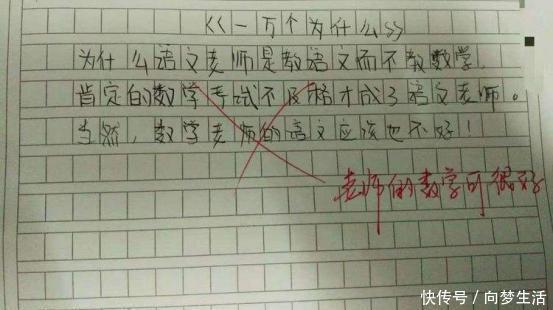 《一万个为什么》
为什么语文老师是教语文而不教数学,
肯定的数学考试不及格才成了语文老师。
当然,数学老师的语文应该也不好!
老师的数学可很好
快传号/向梦生活